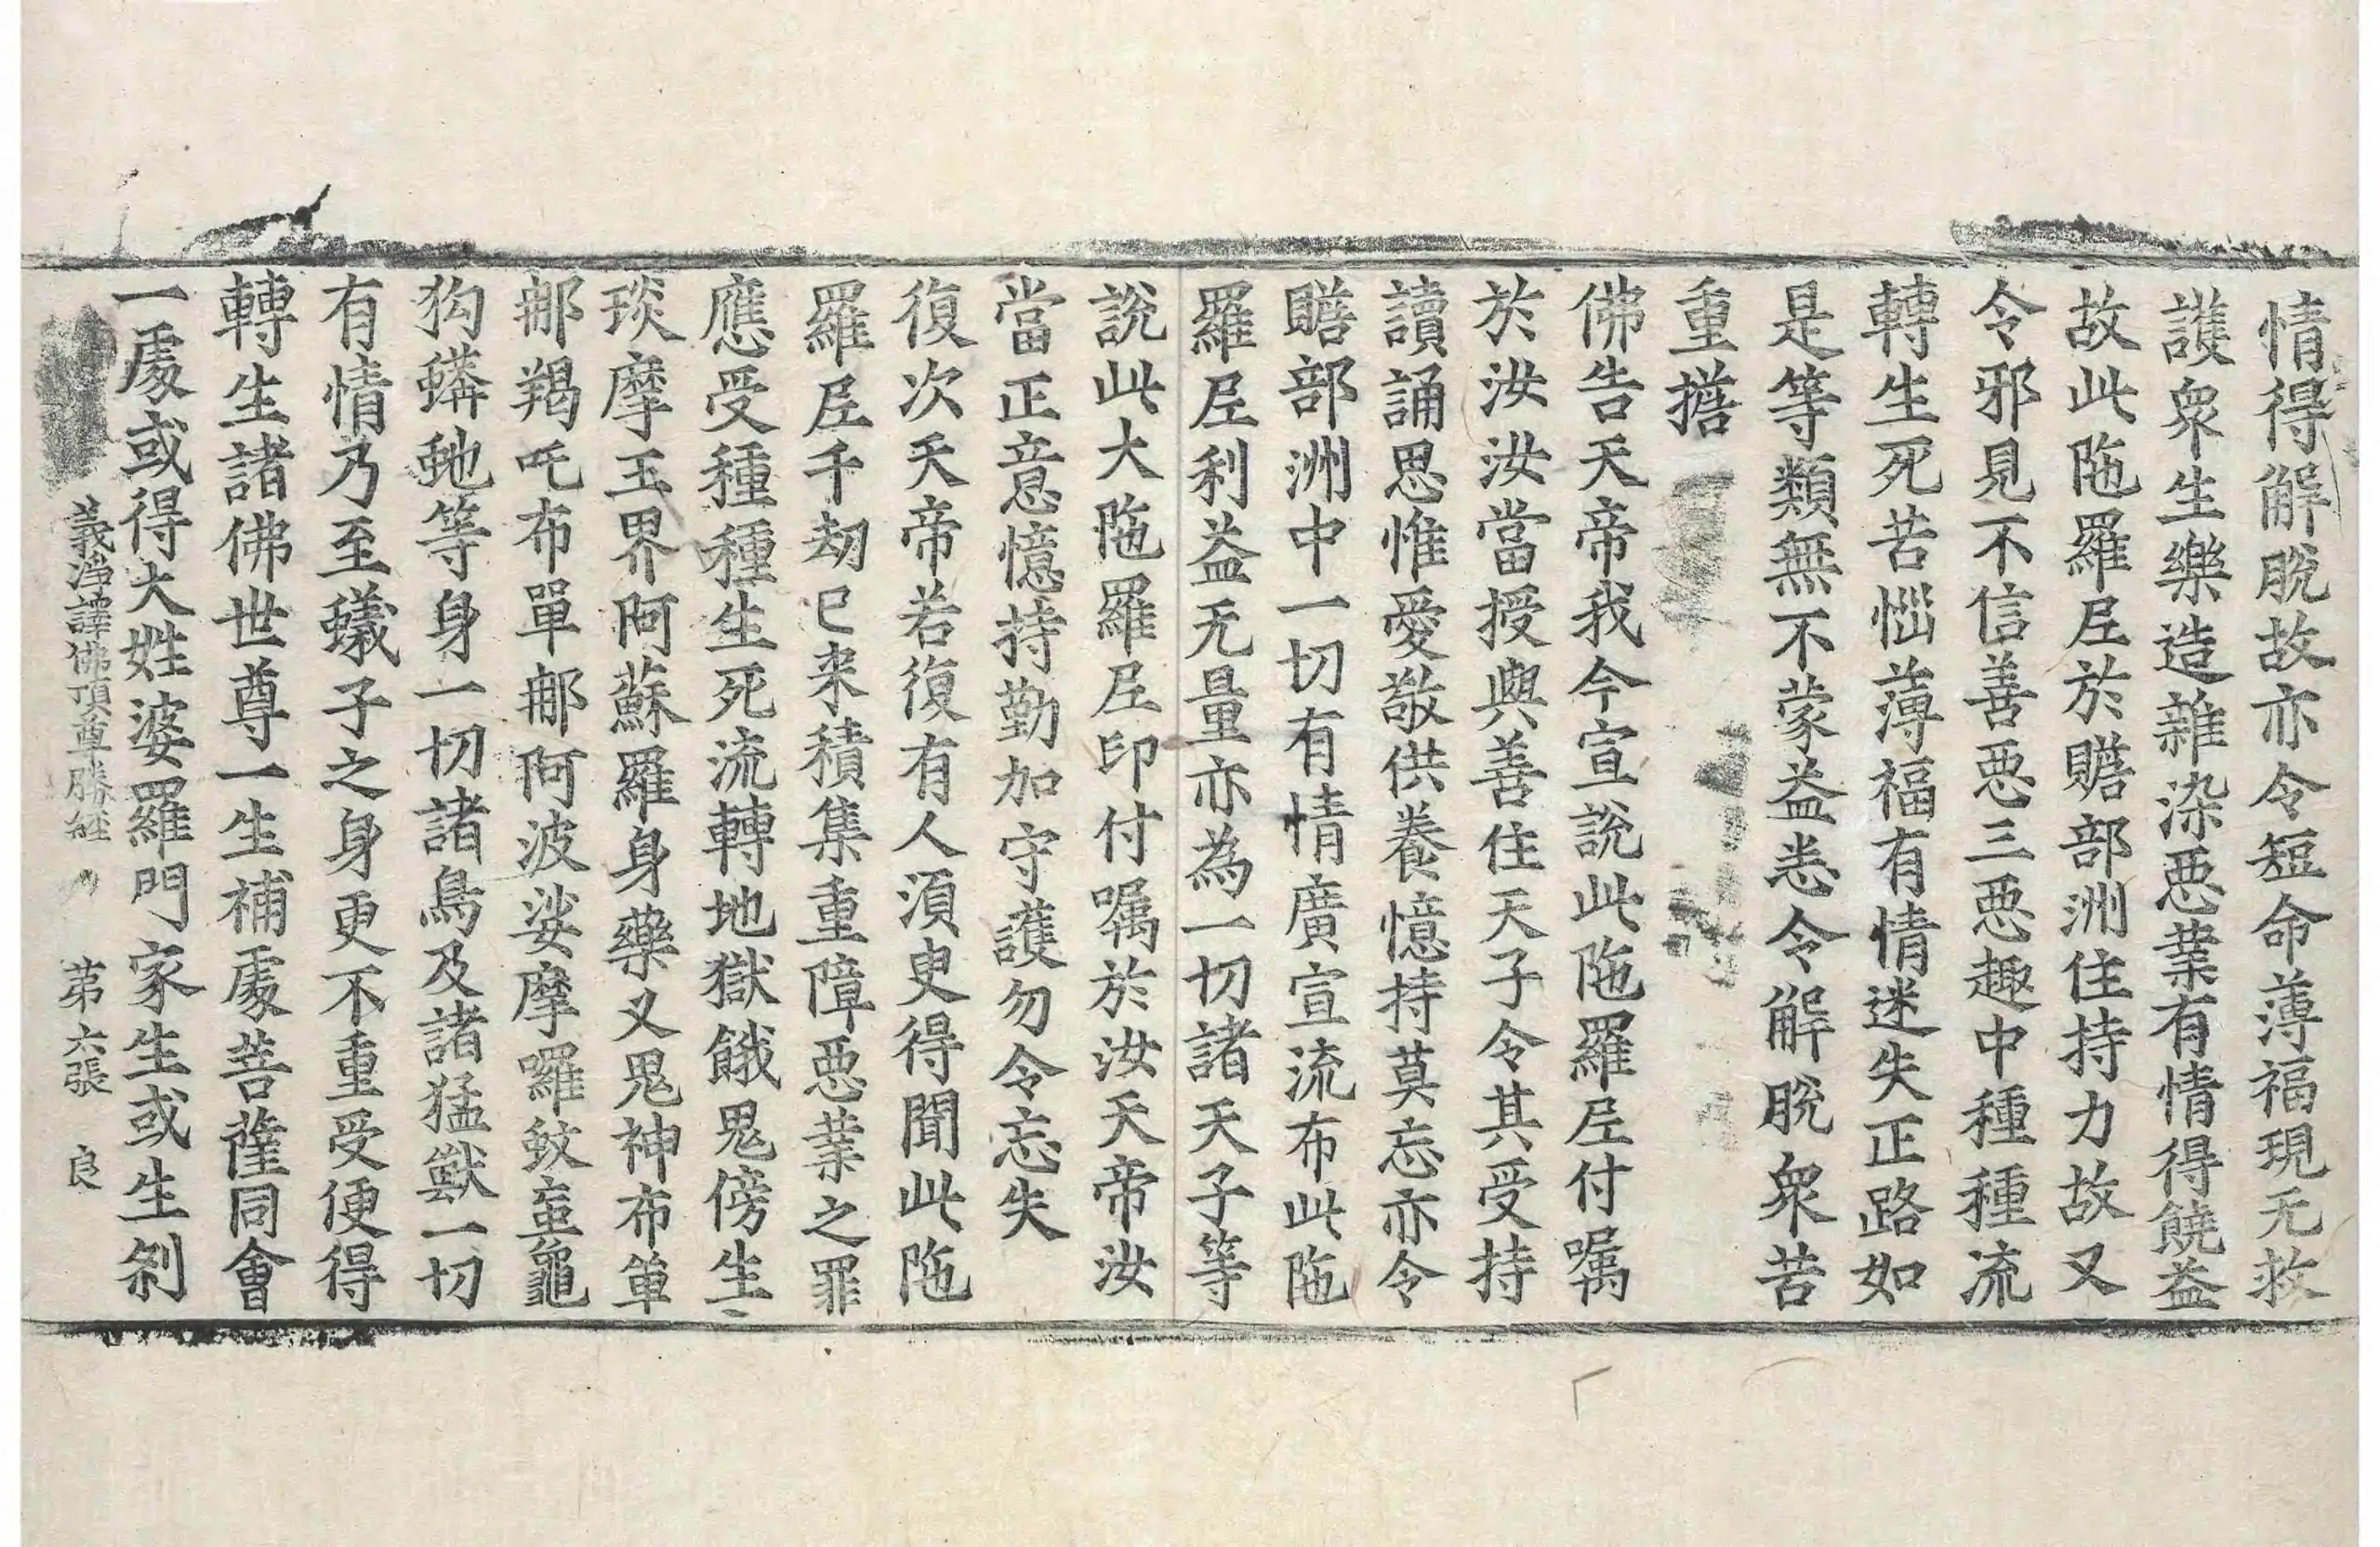 情得解脫故亦令短命薄福現无救
護衆生樂造雜染惡業有情得饒益
故此陁羅尼於贍部洲住持力故又
令邪見不信善惡三惡趣中種種流
轉生死苦惱薄福有情迷失正路如
是等類無不蒙益悉令解脫衆苦
重擔
佛告天帝我今宣說此陁羅尼付囑
於汝汝當授與善住天子令其受持
讀誦思惟愛敬供養憶持莫忘亦令
贍部洲中一切有情廣宣流布此陁
羅尼利益无量亦為一切諸天子等
說此大陁羅尼印付囑於汝天帝汝
當正意憶持勤加守護勿令忘失
復次天帝若復有人須臾得聞此陁
羅尼千劫已来積集重障惡業之罪
應受種種生死流轉地獄餓鬼傍生
琰摩王界阿蘇羅身藥叉鬼神布單
那羯吒布單那阿波娑摩囉蚊䖟龜
狗蟒虵等身一切諸鳥及諸猛獸一切
有情乃至蟻子之身更不重受便得
轉生諸佛世尊一生補處菩薩同會
一處或得大姓婆羅門家生或生刹
義淨譯佛頂尊勝經 第六張 良